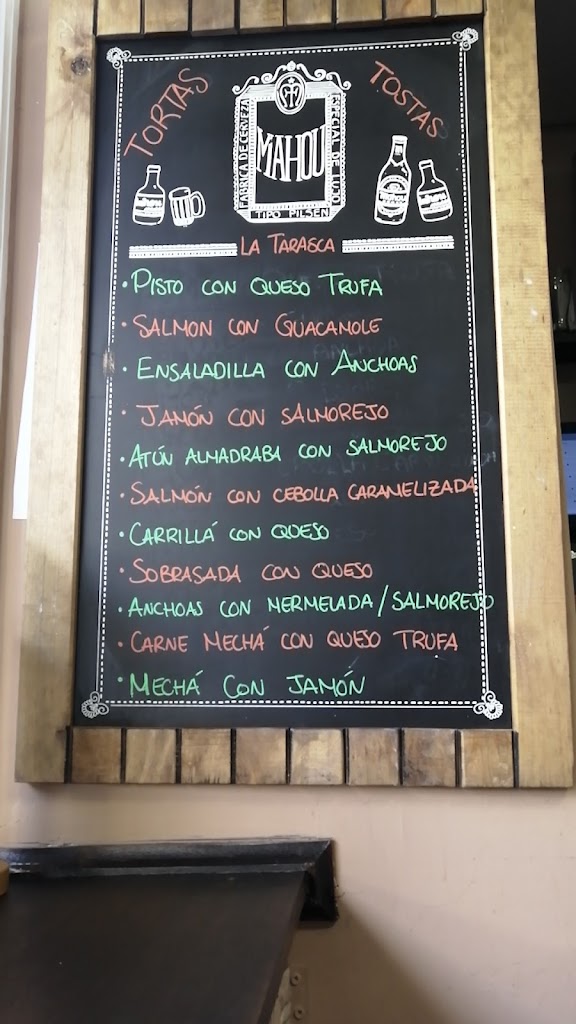 TORTAS
TOSTAS
FABRICA DE CERVEZA
MAHOU
ESPECIAL DE LUJO
TIPO PILSEN
LA TARASCA
• PISTO CON QUESO TRUFA
• SALMON CON GUACAMOLE
• ENSALADILLA CON ANCHOAS
• JAMÓN CON SALMOREJO
• ATÚN ALMADRABA CON SALMOREJO
• SALMÓN CON CEBOLLA CARAMELIZADA
• CARRILLÁ CON QUESO
• SOBRASADA CON QUESO
• ANCHOAS CON MERMELADA/SALMOREJO
• CARNE MECHÁ CON QUESO TRUFA
• MECHÁ CON JAMÓN